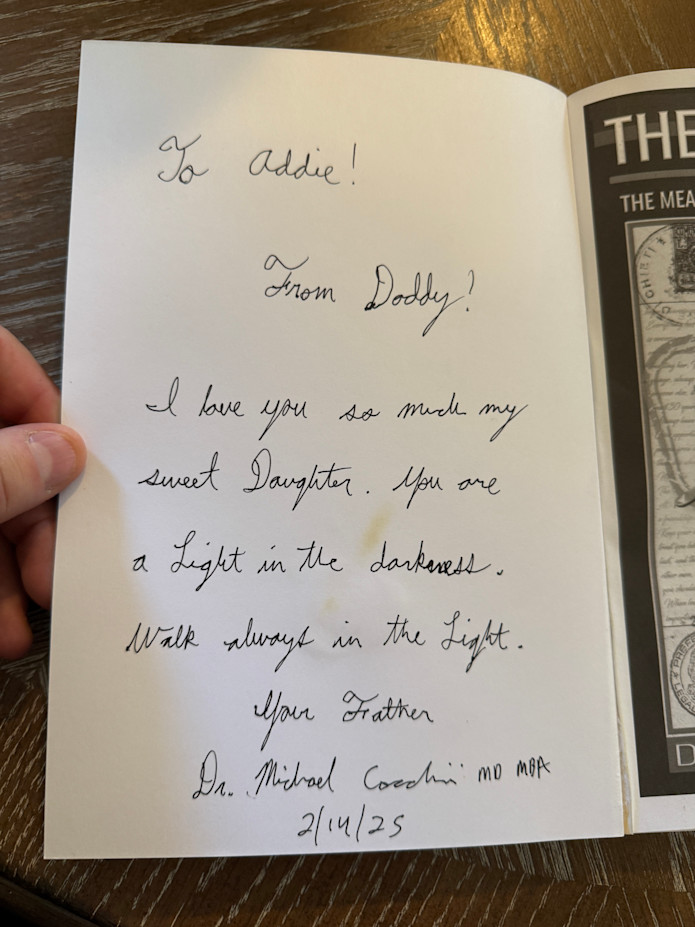 To Addie!
From Daddy!
I love you so much my
sweet Daughter. You are
a Light in the darkness.
Walk always in the Light.
Your Father
Dr. Michael MD MBA
2/14/25
THE
THE MEA